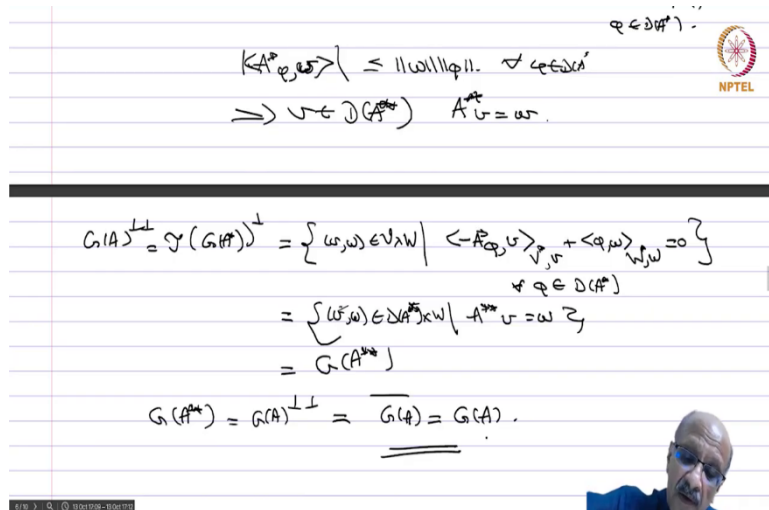 φ ∈ D(A*).
|<A*φ, v>| ≤ ||w|| ||φ||. ∀ φ ∈ D(A*)
⇒ v ∈ D(A**) A**v = w.
NPTEL
G(A)^⊥⊥ = 𝒥(G(A*))^⊥ = { (v,w) ∈ V×W | <-A*φ, v>_{V*,V} + <φ, w>_{W*,W} = 0 }
∀ φ ∈ D(A*)
= { (v,w) ∈ D(A**)×W | A**v = w },
= G(A**)
G(A**) = G(A)^⊥⊥ = \overline{G(A)} = G(A).
6/10 13 Oct 17:09 - 13 Oct 17:13